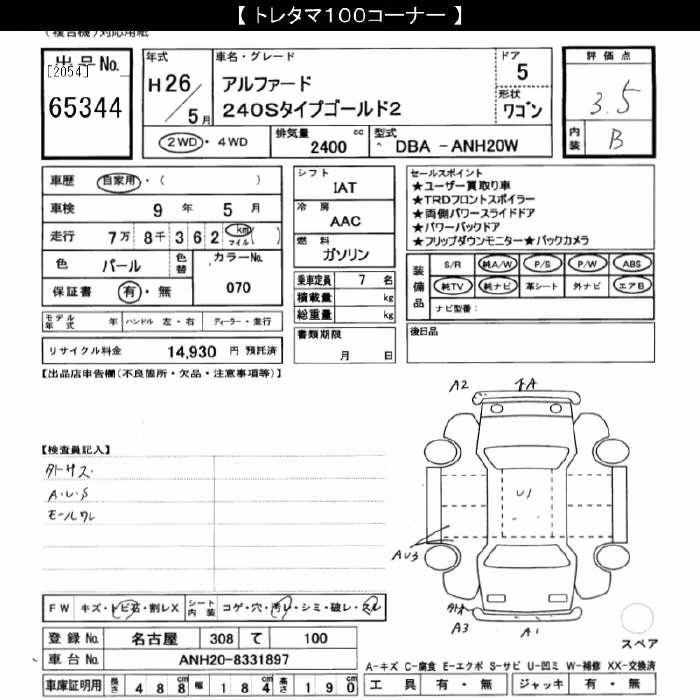 【 トレタマ100コーナー 】
(複合機)対応用紙
出品No.
[2054]
65344
年式
H26/5月
車名・グレード
アルファード
240Sタイプゴールド2
ドア
5
形状
ワゴン
評価点
3.5
内装
B
2WD・4WD
排気量
2400 cc
型式
DBA -ANH20W
車歴 自家用・( )
車検 9年 5月
走行 7万8千362 km マイル( )
色 パール
色替
カラーNo.
070
保証書 有・無
シフト
IAT
冷房
AAC
燃料
ガソリン
乗車定員 7名
積載量 kg
総重量 kg
書類期限
月 日
セールスポイント
★ユーザー買取り車
★TRDフロントスポイラー
★両側パワースライドドア
★パワーバックドア
★フリップダウンモニター★バックカメラ
装備品
S/R 純A/W P/S P/W ABS
純TV 純ナビ 革シート 外ナビ エアB
ナビ型番:
後日品
モデル年式 年 ハンドル 左・右 ディーラー・並行
リサイクル料金 14,930 円 預託済
【出品店申告欄(不良箇所・欠品・注意事項等)】
【検査員記入】
A・U・S
モールワレ
A2
A
U1
AU3
A3
A1
スペア
FW キズ・トビ石・割レX
シート内装 コゲ・穴・汚レ・シミ・破レ・スレ
登録No. 名古屋 308 て 100
車台No. ANH20-8331897
車庫証明用 長さ 488cm 幅 184cm 高さ 190cm
A-キズ C-腐食 E-エクボ S-サビ U-凹ミ W-補修 XX-交換済
工具 有・無 ジャッキ 有・無